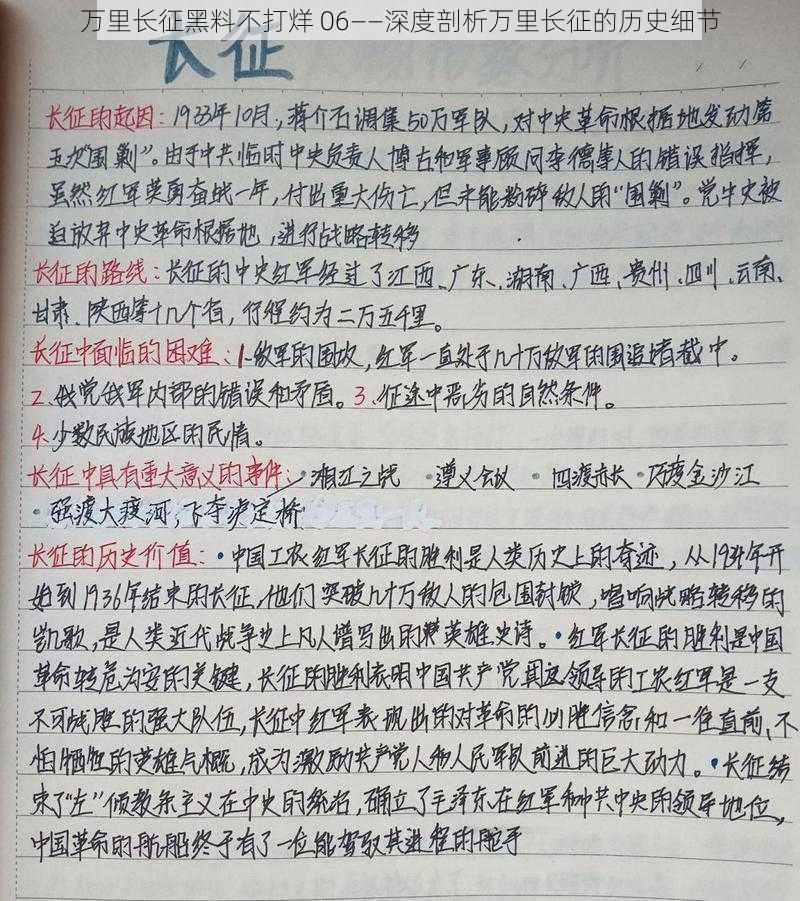 万里长征黑料不打烊 06——深度剖析万里长征的历史细节
长征
长征的起因：1933年10月，蒋介石调集50万军队，对中央革命根据地发动第
五次"围剿"。由于中共临时中央负责人博古和军事顾问李德等人的错误指挥，
虽然红军英勇奋战一年，付出重大伤亡，但未能粉碎敌人的"围剿"。党中央被
迫放弃中央革命根据地，进行战略转移
长征的路线：长征的中央红军经过了江西、广东、湖南、广西、贵州、四川、云南、
甘肃、陕西等十几个省，行程约为二万五千里。
长征中面临的困难：1.敌军的围攻，红军一直处于几十万敌军的围追堵截中。
2.我党我军内部的错误和矛盾。3.征途中恶劣的自然条件。
4.少数民族地区的民情。
长征中具有重大意义的事件：·湘江之战 ·遵义会议 ·四渡赤水 ·巧渡金沙江
·强渡大渡河，飞夺泸定桥
长征的历史价值：·中国工农红军长征的胜利是人类历史上的奇迹，从1934年开
始到1936年结束的长征，他们突破几十万敌人的包围封锁，唱响战略转移的
凯歌，是人类近代战争史上凡人谱写出的英雄史诗。·红军长征的胜利是中国
革命转危为安的关键，长征的胜利表明中国共产党其领导的工农红军是一支
不可战胜的强大队伍，长征中红军表现出的对革命的必胜信念和一往直前、不
怕牺牲的英雄气概，成为激励共产党人和人民军队前进的巨大动力。·长征结
束了"左"倾教条主义在中央的统治，确立了毛泽东在红军和中共中央的领导地位，
中国革命的航船终于有了一位能驾驭其进程的舵手